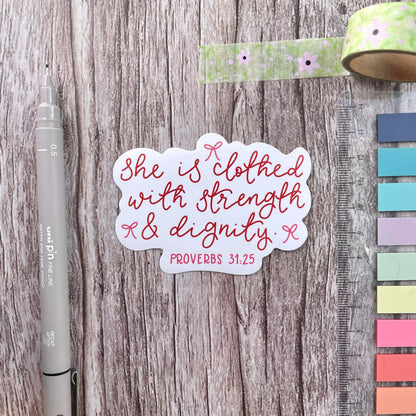 She is clothed
with strength
& dignity.
PROVERBS 31:25
0.5
uni pin FINE LINE